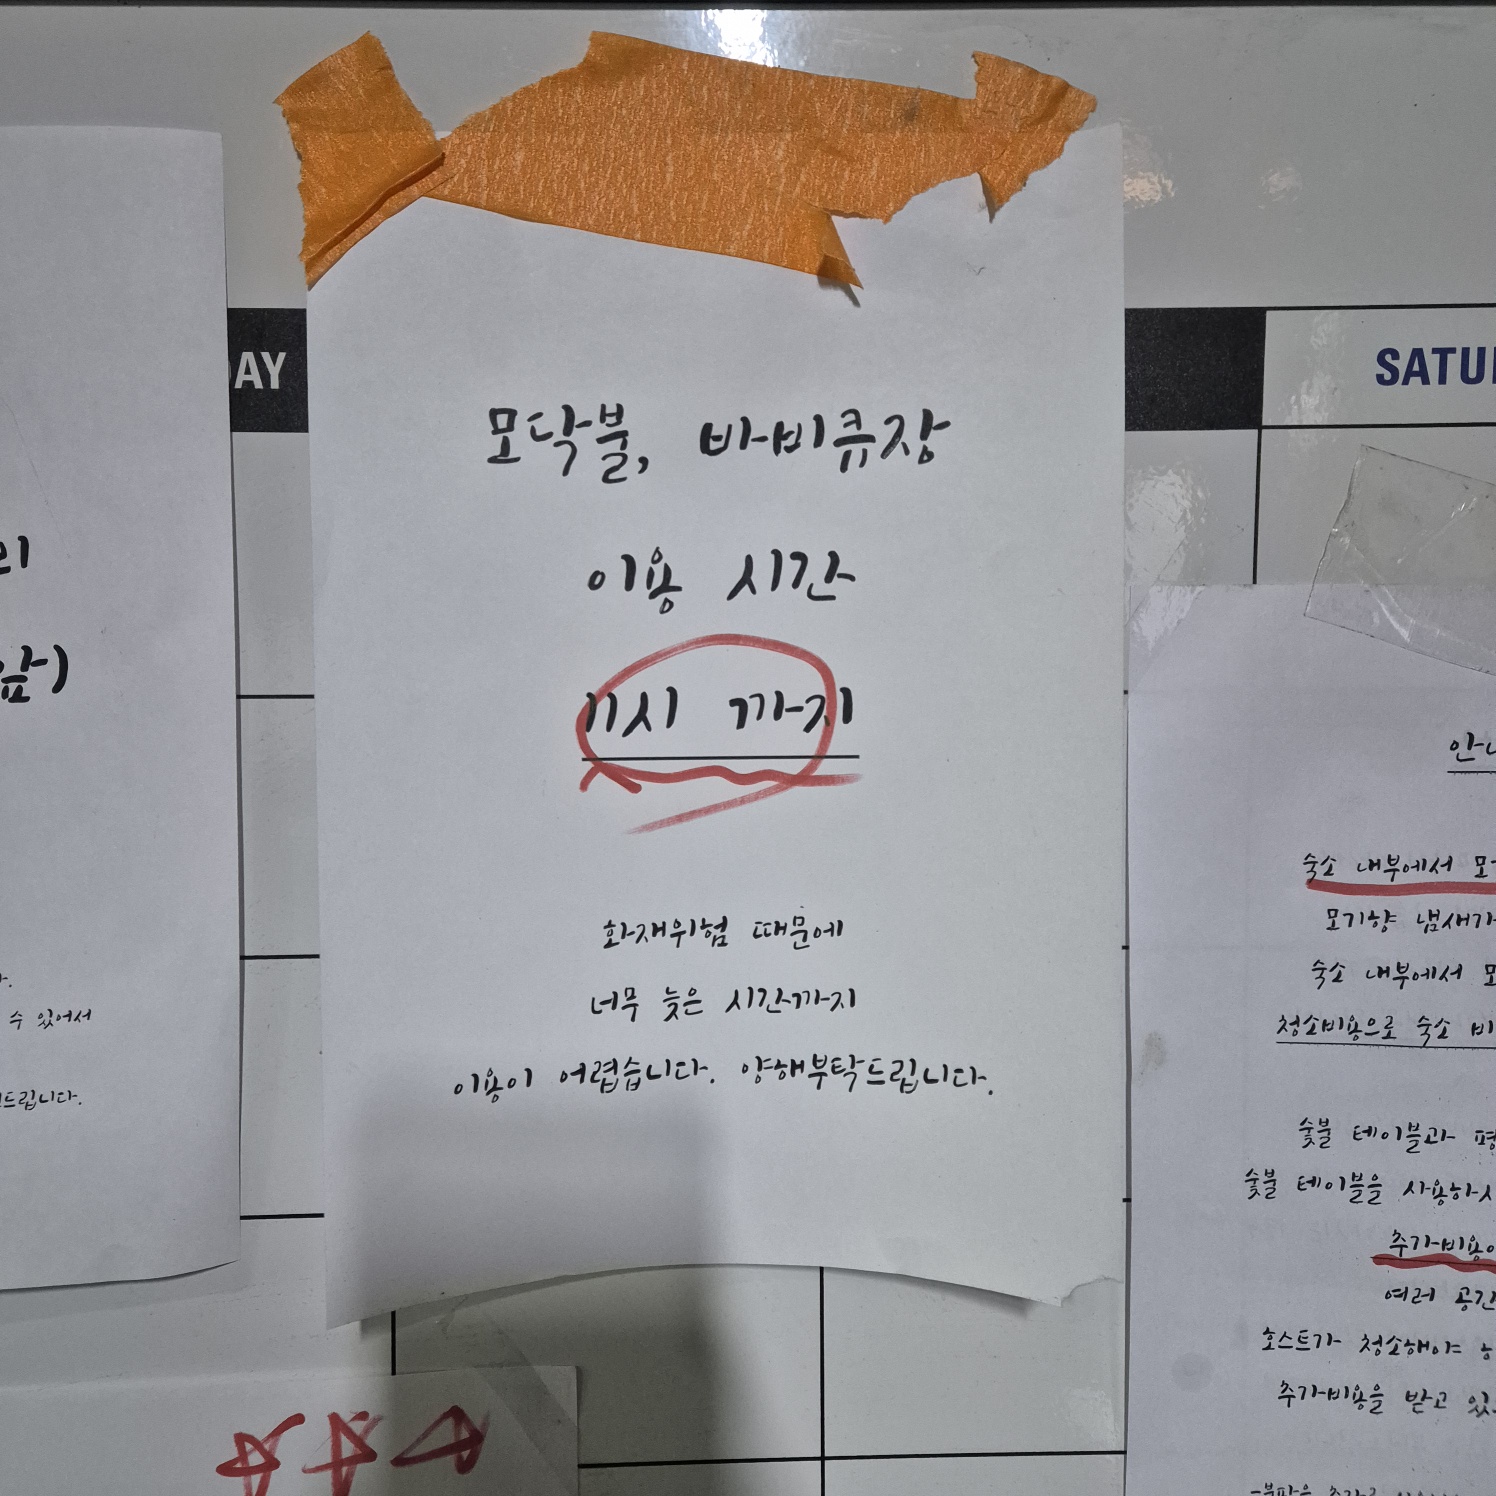 SATU
모닥불, 바비큐장
이용 시간
11시 까지
화재위험 때문에
너무 늦은 시간까지
이용이 어렵습니다. 양해부탁드립니다.
앞)
수 있어서
드립니다.
숙소 내부에서
모기향 냄새가
숙소 내부에서
청소비용으로 숙소
숯불 테이블과
숯불 테이블을 사용하시
추가비용이
여러 공간
호스트가 청소해야
추가비용을 받고